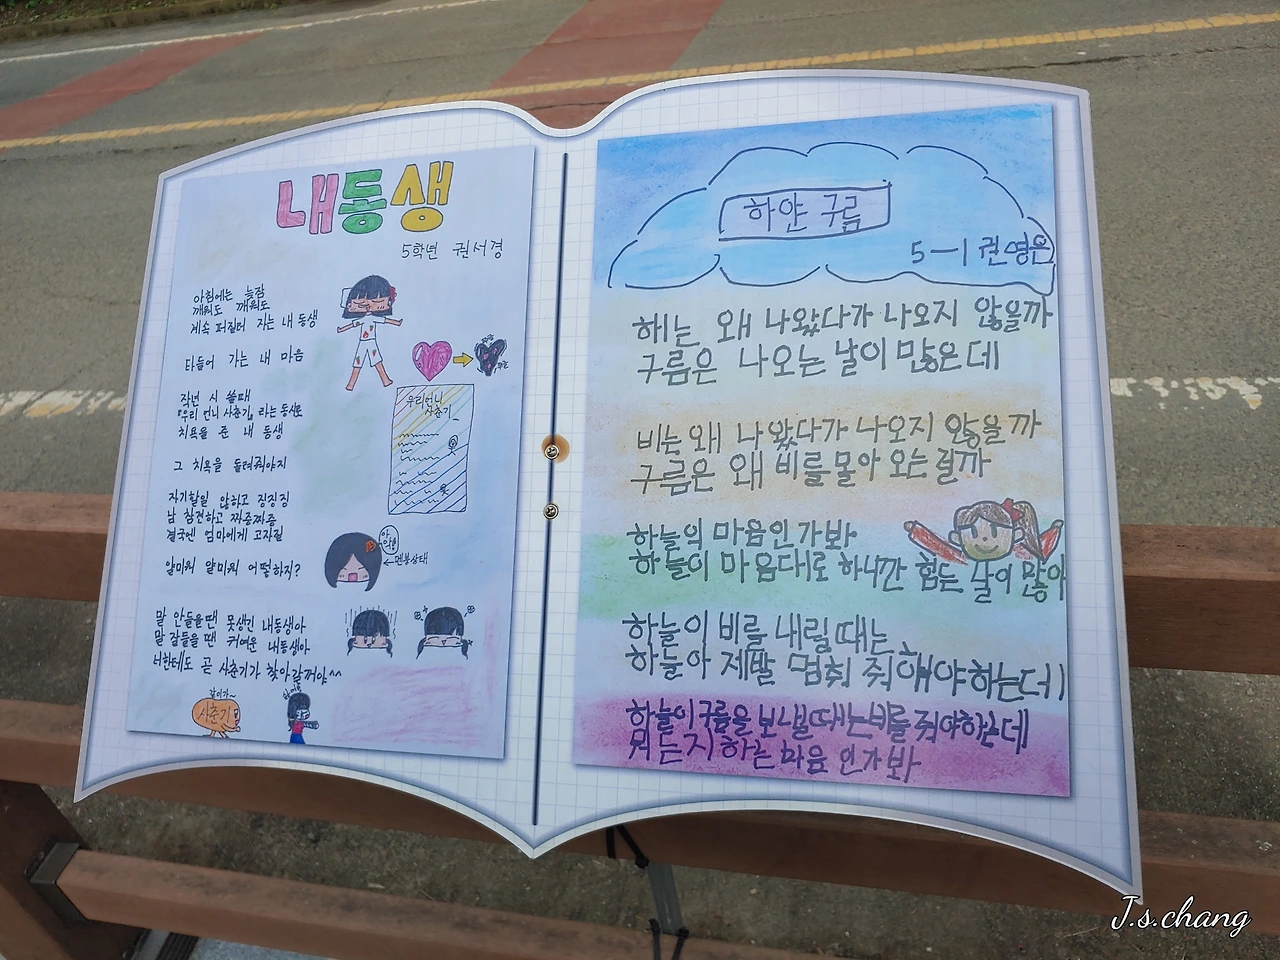 내동생
5학년 권서경
아침에는 늦잠
깨워도 깨워도
계속 퍼질러 자는 내 동생
타들어 가는 내 마음
작년 시 쓸때
『우리 언니 사춘기』라는 동시로
치욕을 준 내 동생
그 치욕을 돌려줘야지
자기할일 않하고 징징징
남 참견하고 짜증짜증
결국엔 엄마에게 고자질
얄미워 얄미워 어떻하지?
말 안들을땐 못생긴 내동생아
말 잘들을 땐 귀여운 내동생아
너한테도 곧 사춘기가 찾아갈꺼야^^
우리언니
사춘기
아악!!
←멘붕상태
같이가~
사춘기
하얀 구름
5-1 권영은
해는 왜 나왔다가 나오지 않을까
구름은 나오는 날이 많은데
비는 왜 나왔다가 나오지 않을까
구름은 왜 비를 몰아 오는걸까
하늘의 마음인가봐
하늘이 마음대로 하니깐 힘든 날이 많아
하늘이 비를 내릴때는
하늘아 제발 멈춰 줘 해야하는데
하늘이 구름을 보낼때는 비를 줘야하는데
뭐든지 하는 마음 인가봐
J.s.chang